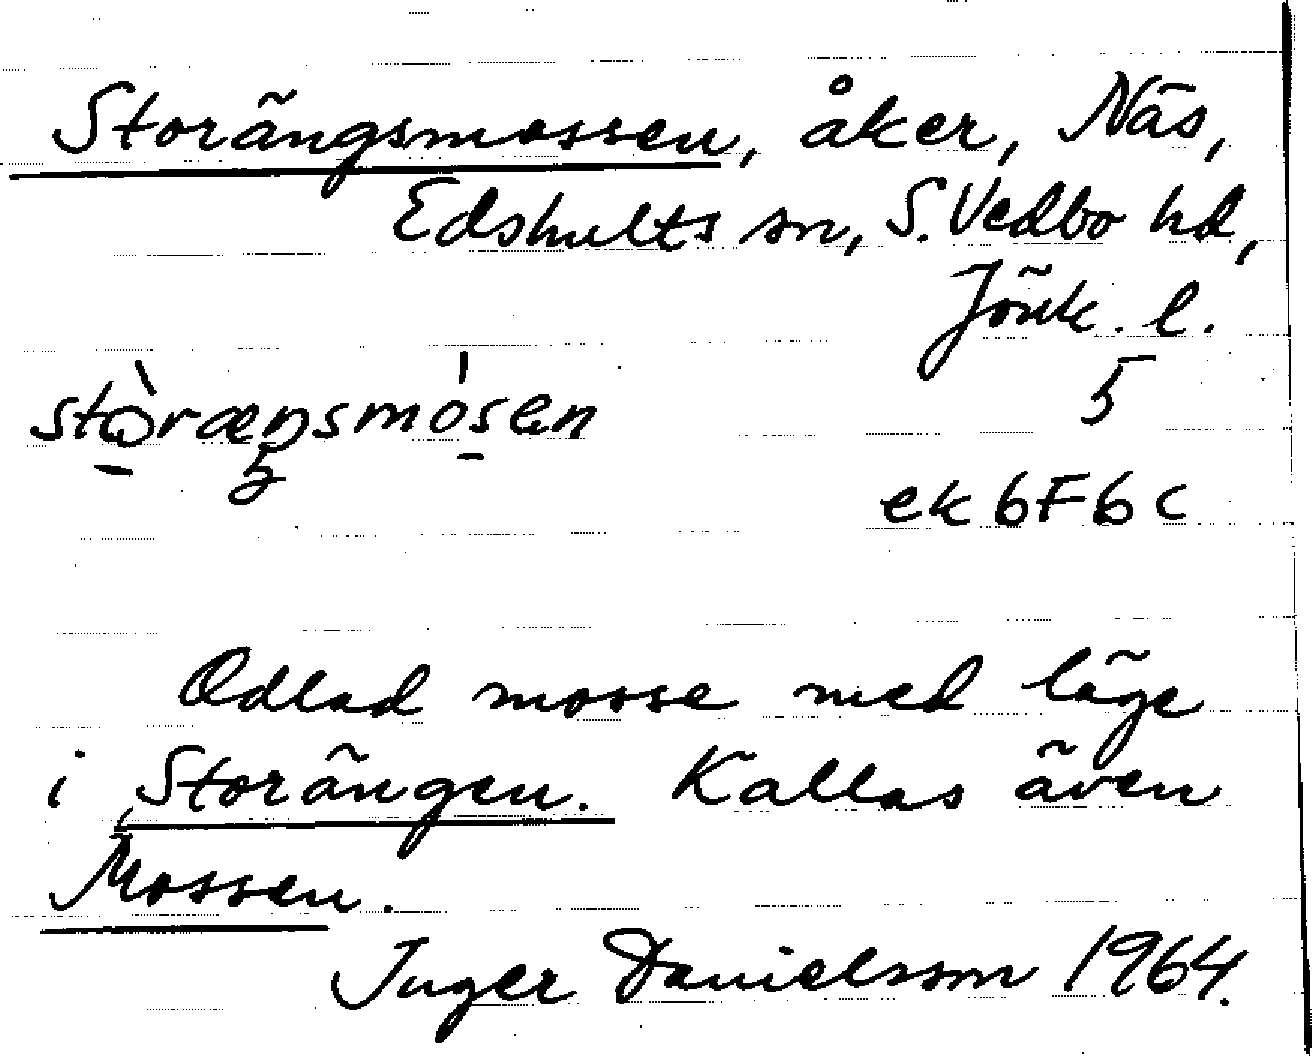 Storängsmossen, åker, Näs,
Edshults sn, S. Vedbo hd,
Jönk. l.
5
stòræŋsmósen
5
ek 6F6c
Odlad mosse med läge
i Storängen. Kallas även
Mossen.
Inger Danielsson 1964.